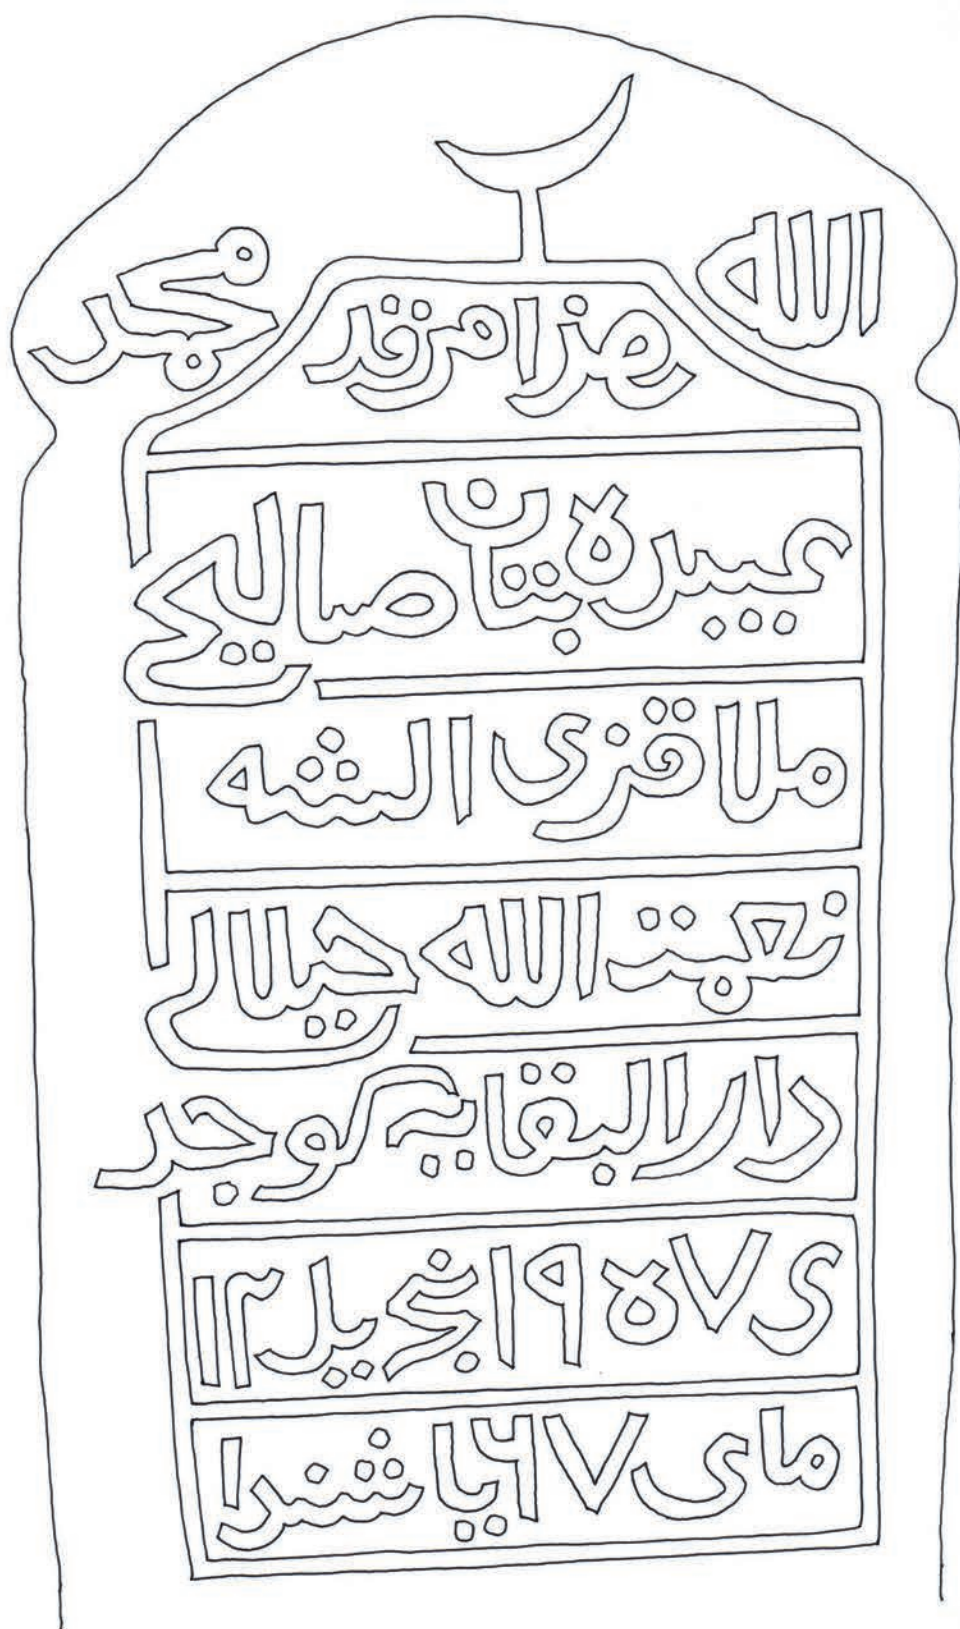 الله محمد
هذا مرقد
عبيده بنتان صالح
ملا قزى الشه
نعمت الله جيلالى
دار البقايه كوجد
ى ١٩٥٧ نجى يل ١٢
ماى ٦٧ ياشندا